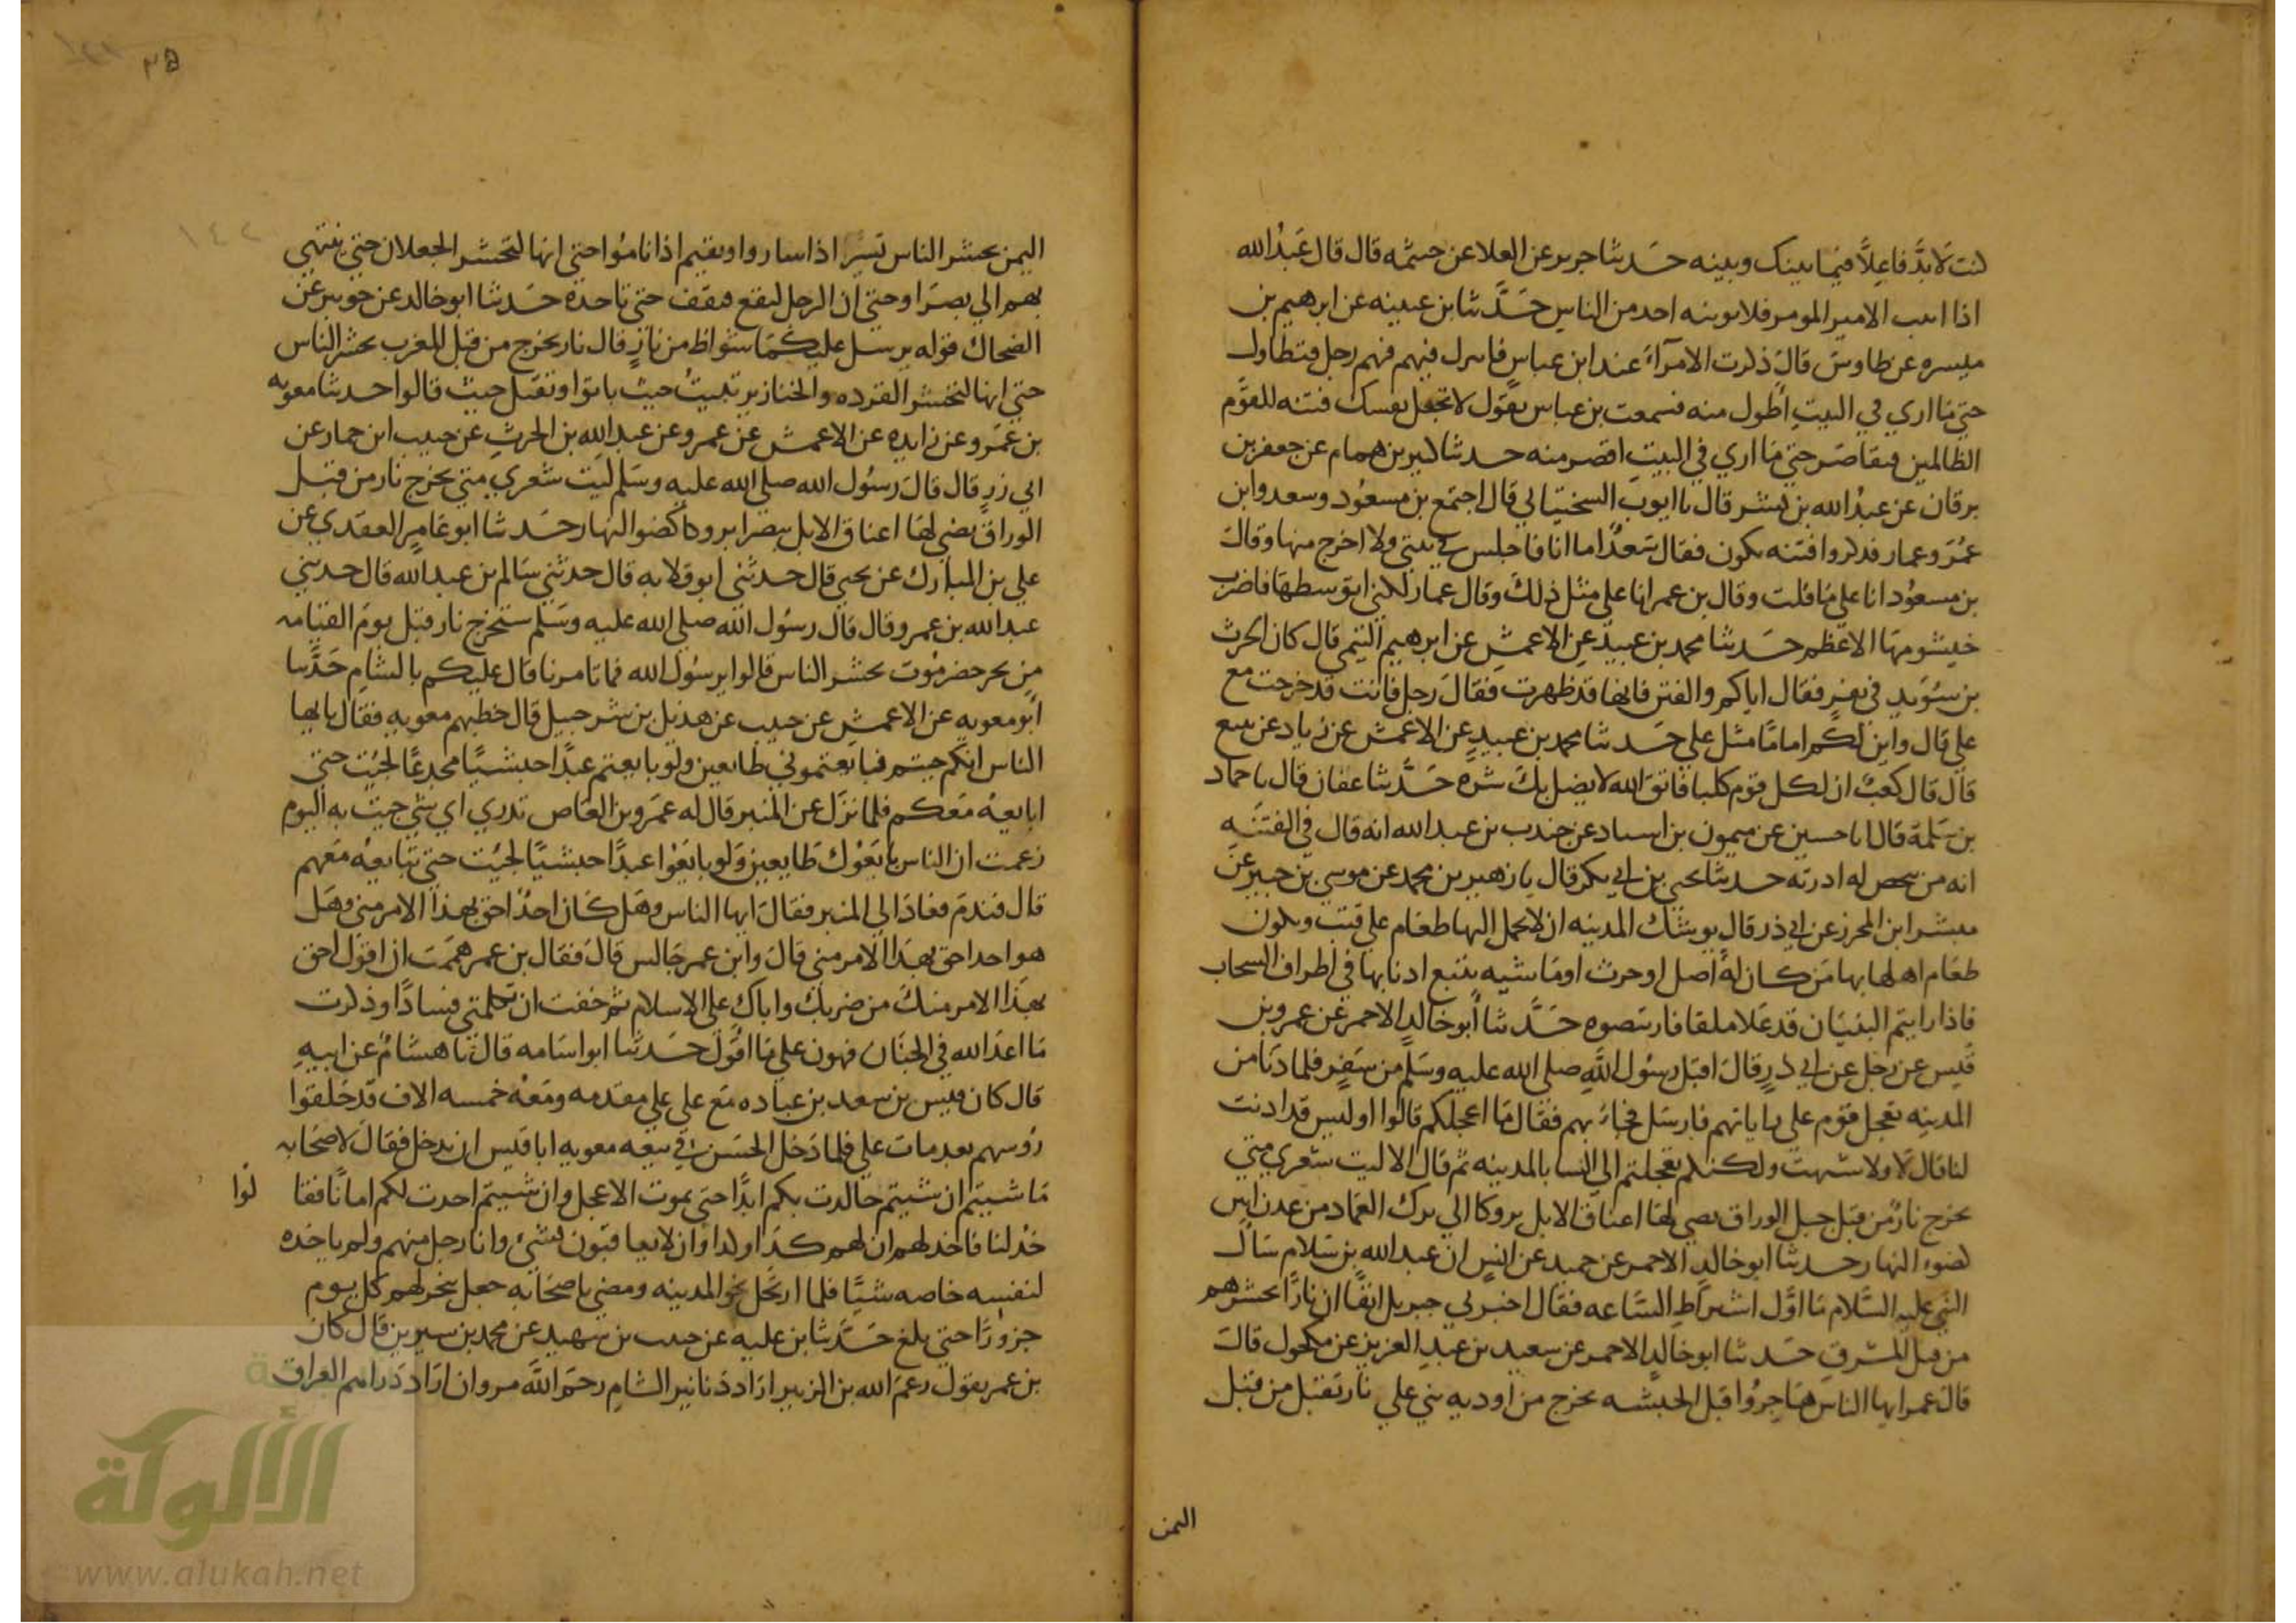 كنت لا بد فاعلا فيما بينك وبينه حدثنا جرير عن العلا عن خيثمه قال قال عبد الله
اذا اتيت الامير المومر فلا يوتينه احد من الناس حدثنا بن عيينه عن ابرهيم بن
ميسره عن طاوس قال ذكرت الامرآء عند ابن عباس فانبرك فيهم رجل فتطاول
حتي ما اري في البيت اطول منه فسمعت بن عباس يقول لا تجعل نفسك فتنه للقوم
الظالمين فتقاصر حتي ما اري في البيت اقصر منه حدثنا كثير بن همام عن جعفر بن
برقان عن عبد الله بن بشر قال نا ايوب السختياني قال اجتمع بن مسعود وسعد وابن
عمر وعمار فذكروا فتنه تكون فقال سعد اما انا فاجلس في بيتي ولا اخرج منها وقال
بن مسعود انا علي ما قلت وقال بن عمر انا علي مثل ذلك وقال عمار لكني اتوسطها فاضرب
خيشومها الاعظم حدثنا محمد بن عبيد عن الاعمش عن ابرهيم التيمي قال كان الحرث
بن سويد في نفر فقال اياكم والفتن فانها قد ظهرت فقال رجل فانت قد خرجت مع
علي قال واين لكم اماما مثل علي حدثنا محمد بن عبيد عن الاعمش عن زياد عن تبيع
قال قال كعب ان لكل قوم كلبا فاتق الله لا يضل بك شره حدثنا عفان قال نا حماد
بن سلمة قال انا حسين عن ميمون بن استاد عن جندب بن عبد الله انه قال في الفتنه
انه من شخص له اردته حدثنا يحيي بن ابي بكر قال نا زهير بن محمد عن موسي بن جبير عن
مبشر ابن المحرز عن ابي ذر قال يوشك المدينه ان لا يحمل اليها طعام علي قتب ويكون
طعام اهلها بها من كان له اصل او حرث او ماشيه يتتبع اذنابها في اطراف السحاب
فاذا رايتم البنيان قد علا سلعا فارتبصوه حدثنا ابو خالد الاحمر عن عمرو بن
قيس عن رجل عن ابي ذر قال اقبل رسول الله صلي الله عليه وسلم من سفر فلما دنا من
المدينه تعجل قوم علي راياتهم فارسل فجاء بهم فقال ما اعجلكم قالوا اوليس قد اذنت
لنا قال لا ولا شبهت ولكنكم تعجلتم الي النسا بالمدينه ثم قال الا ليت شعري متي
تخرج نار من قبل جبل الوراق تضي لها اعناق الابل بروكا الي برك الغماد من عدن ابين
كضوء النهار حدثنا ابو خالد الاحمر عن حميد عن انس ان عبد الله بن سلام سال
النبي عليه السلام ما اول اشراط الساعه فقال اخبرني جبريل انفا ان نارا تحشرهم
من قبل المشرق حدثنا ابو خالد الاحمر عن سعيد بن عبد العزيز عن مكحول قال
قال عمر ايها الناس هاجروا قبل الحبشه تخرج من اوديه بني علي نار تقبل من قبل
اليمن
اليمن تحشر الناس تسير اذا ساروا وتقيم اذا ناموا حتي انها لتحشر الجعلان حتي ينتهي
بهم الي بصرا وحتي ان الرجل ليقع فتقف حتي تاخذه حدثنا ابو خالد عن جويبر عن
الضحاك قوله يرسل عليكما شواظ من نار قال نار تخرج من قبل المغرب تحشر الناس
حتي انها لتحشر القرده والخنازير تبيت حيث باتوا وتقيل حيث قالوا حدثنا معويه
بن عمرو عن زايده عن الاعمش عن عمرو عن عبد الله بن الحرث عن حبيب ابن حمار عن
ابي ذر قال قال رسول الله صلي الله عليه وسلم ليت شعري متي تخرج نار من قبل
الوراق تضي لها اعناق الابل ببصرا بروكا كضوا النهار حدثنا ابو عامر العقدي عن
علي بن المبارك عن يحيي قال حدثني ابو قلابه قال حدثني سالم بن عبد الله قال حدثني
عبد الله بن عمرو قال قال رسول الله صلي الله عليه وسلم ستخرج نار قبل يوم القيامه
من بحر حضرموت تحشر الناس قالوا يرسول الله فما تامرنا قال عليكم بالشام حدثنا
ابو معويه عن الاعمش عن حبيب عن هذيل بن شرحبيل قال خطبهم معويه فقال يا ايها
الناس انكم جيتم فبايعتموني طايعين ولو بايعتم عبدا حبشيا مجدعا لجيت حتي
ابايعه معكم فلما نزل عن المنبر قال له عمرو بن العاص تدري اي شي جيت به اليوم
زعمت ان الناس بايعوك طايعين ولو بايعوا عبدا حبشيا لجيت حتي تبايعه معهم
قال فندم فعاد الي المنبر فقال ايها الناس وهل كان احد احق بهذا الامر مني وهل
هو احد احق بهذا الامر مني قال وابن عمر جالس قال فقال بن عمر هممت ان اقول احق
بهذا الامر منك من ضربك واباك علي الاسلام ثم خفت ان تكون كلمتي فسادا وذكرت
ما اعد الله في الجنان فهون علي ما اقول حدثنا ابو اسامه قال نا هشام عن ابيه
قال كان قيس بن سعد بن عباده مع علي علي مقدمه ومعه خمسه الاف قد حلقوا
روسهم بعد مات علي فلما دخل الحسن في بيعه معويه ابا قيس ان يدخل فقال لاصحابه
ما شيتم ان شيتم جالدت بكم ابدا حتي يموت الاعجل وان شيتم اخذت لكم امانا فقا لوا
خذ لنا فاخذ لهم ان لهم كذا وكذا وان لا يعاقبون بشئ وانا رجل منهم ولم ياخذه
لنفسه خاصه شيا فلما ارتحل نحو المدينه ومضي باصحابه جعل ينحر لهم كل يوم
جزورا حتي بلغ حدثنا بن عليه عن حبيب بن شهيد عن محمد بن سيرين قال كان
بن عمر يقول رحم الله بن الزبير اراد دنانير الشام رحم الله مروان اراد دراهم العراق
الألوكة
www.alukah.net